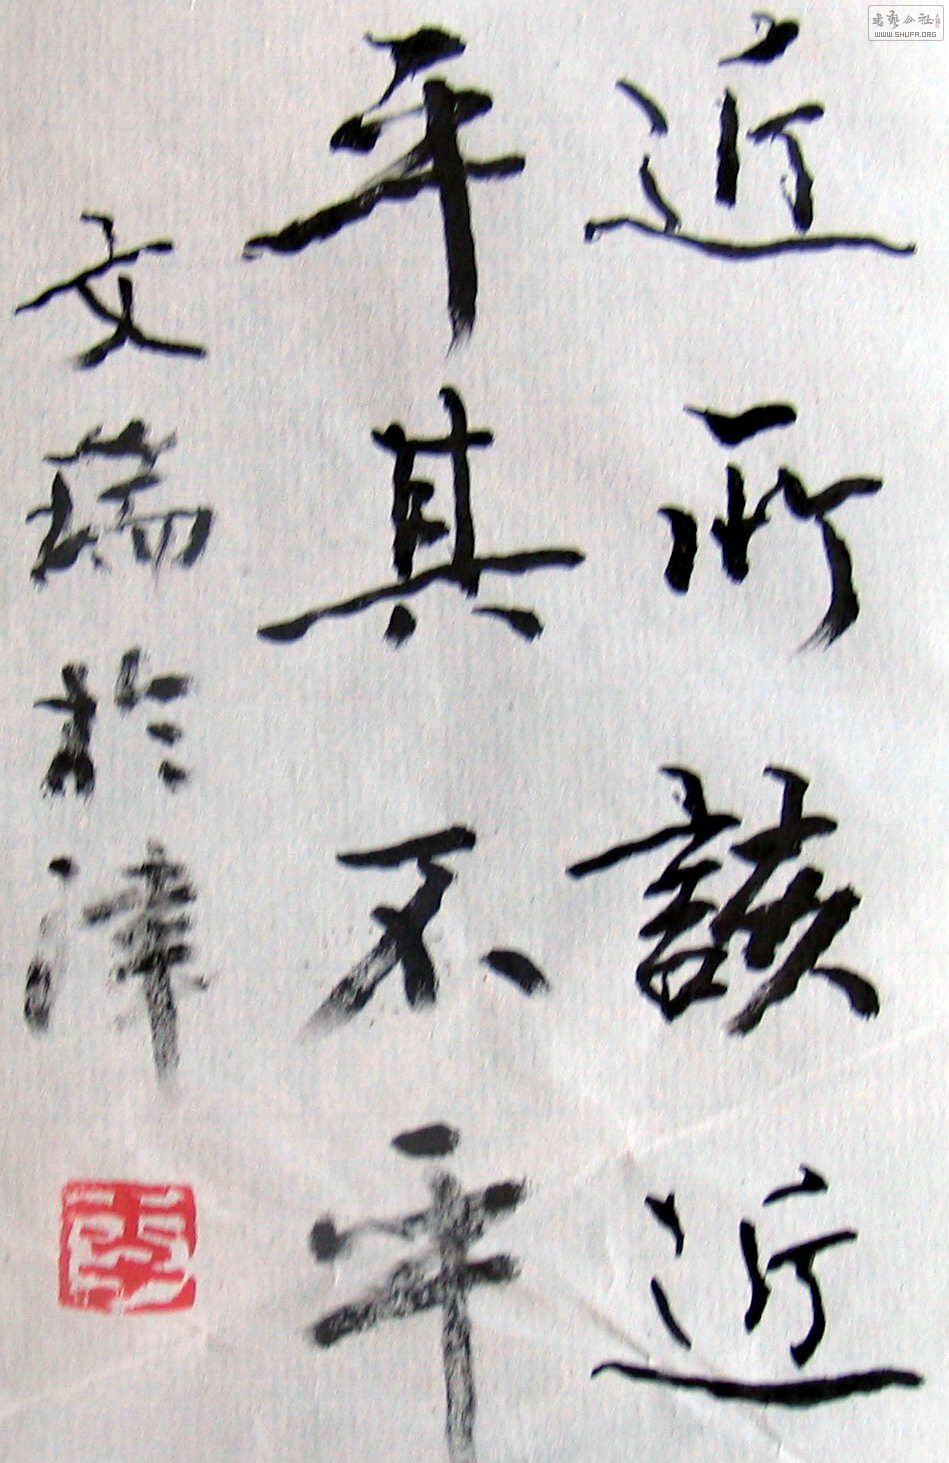 近所該近
平其不平
文瑞於津
書藝公社
WWW.SHUFA.ORG